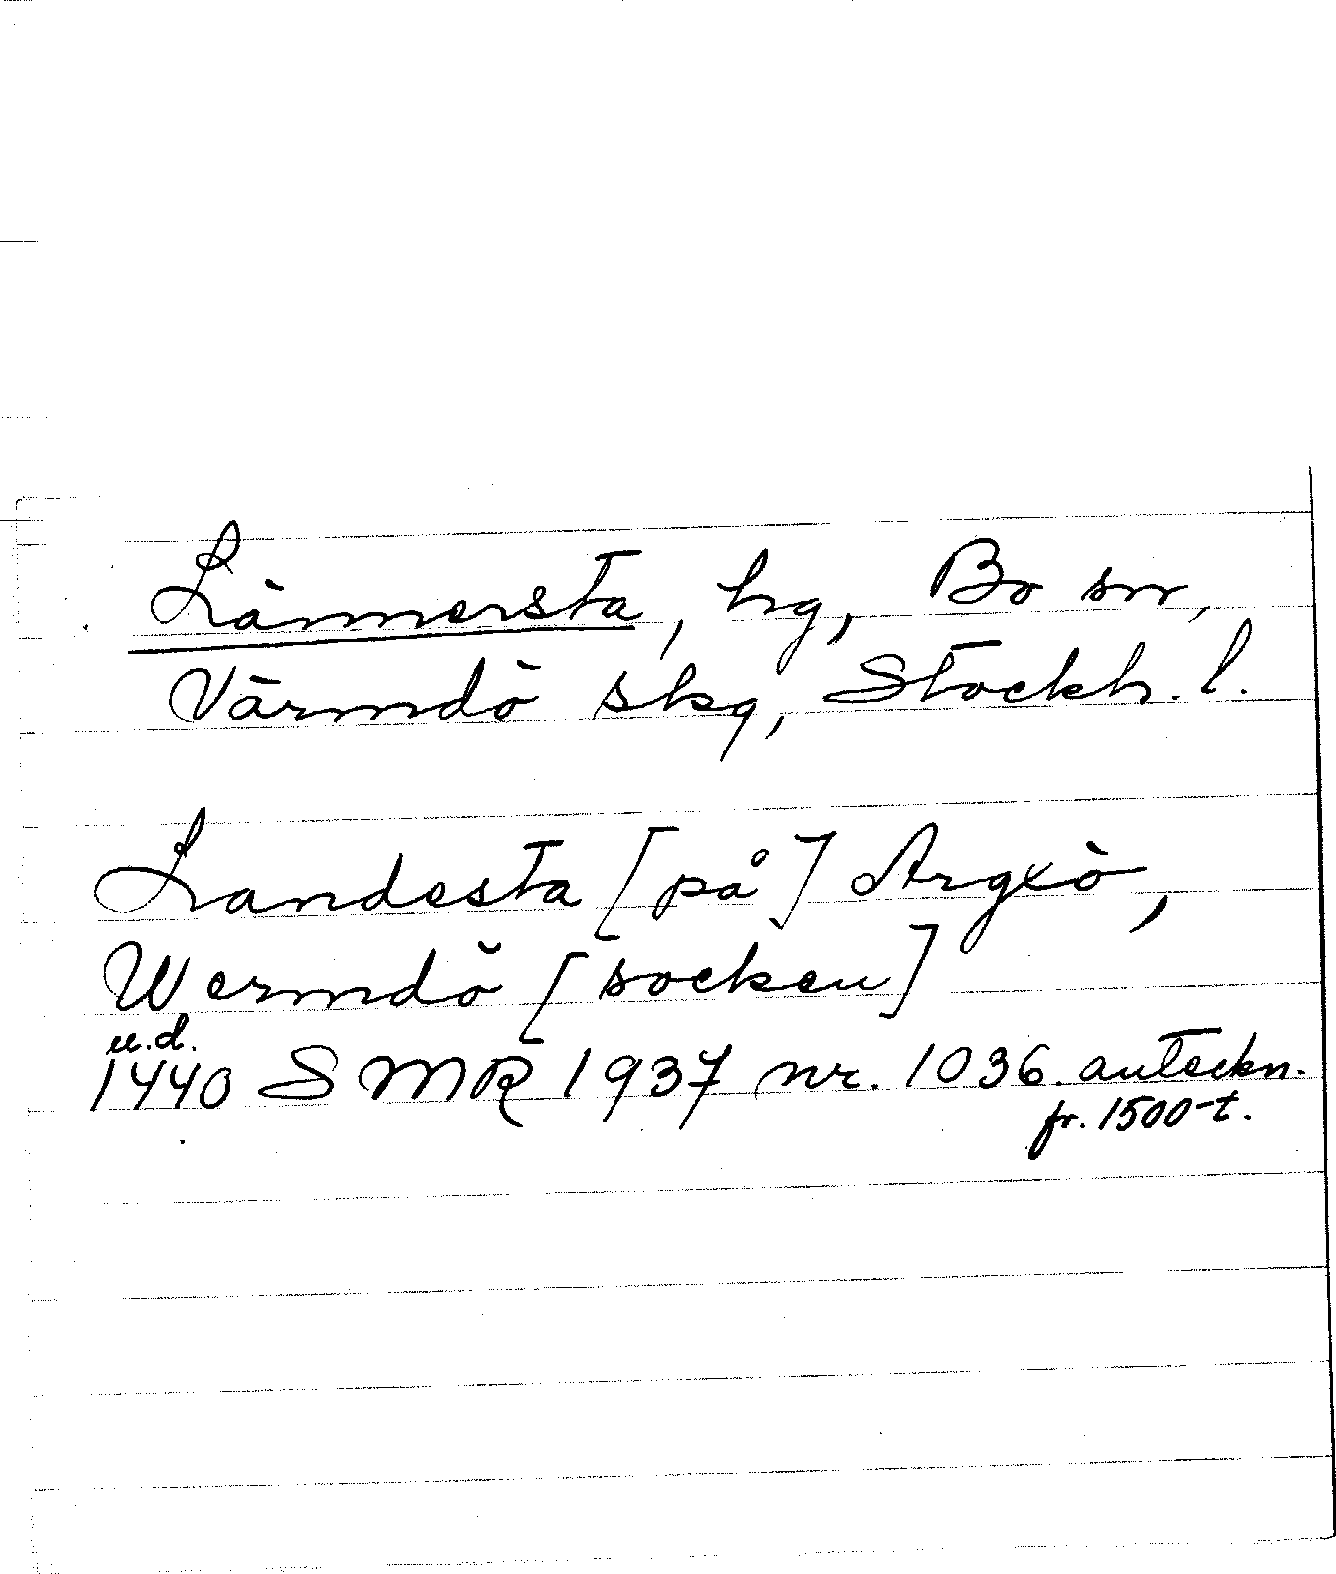 Lännersta, hg, Bo sn,
Värmdö skg, Stockh. l.
Landesta [på] Argxö,
Wermdö [socken]
u.d.
1440 SMR 1937 nr. 1036. anteckn.
fr. 1500-t.